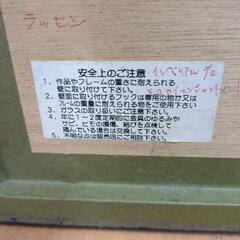 ラッセン
安全上のご注意
インペリアル
1．作品やフレームの重さに耐えられる
壁に取り付けて下さい。
2．壁面に取り付けるフックは専用の物か又
フレームの重量に耐えられる物をご使用下さい
3．ガラスの取り扱いにご注意下さい。
4．年に1～2度定期的に金具のゆるみや
サビ、ヒモの損傷、結びを点検して
痛んでいる場合は交換して下さい。
5．不明な点は販売店にご相談下さい